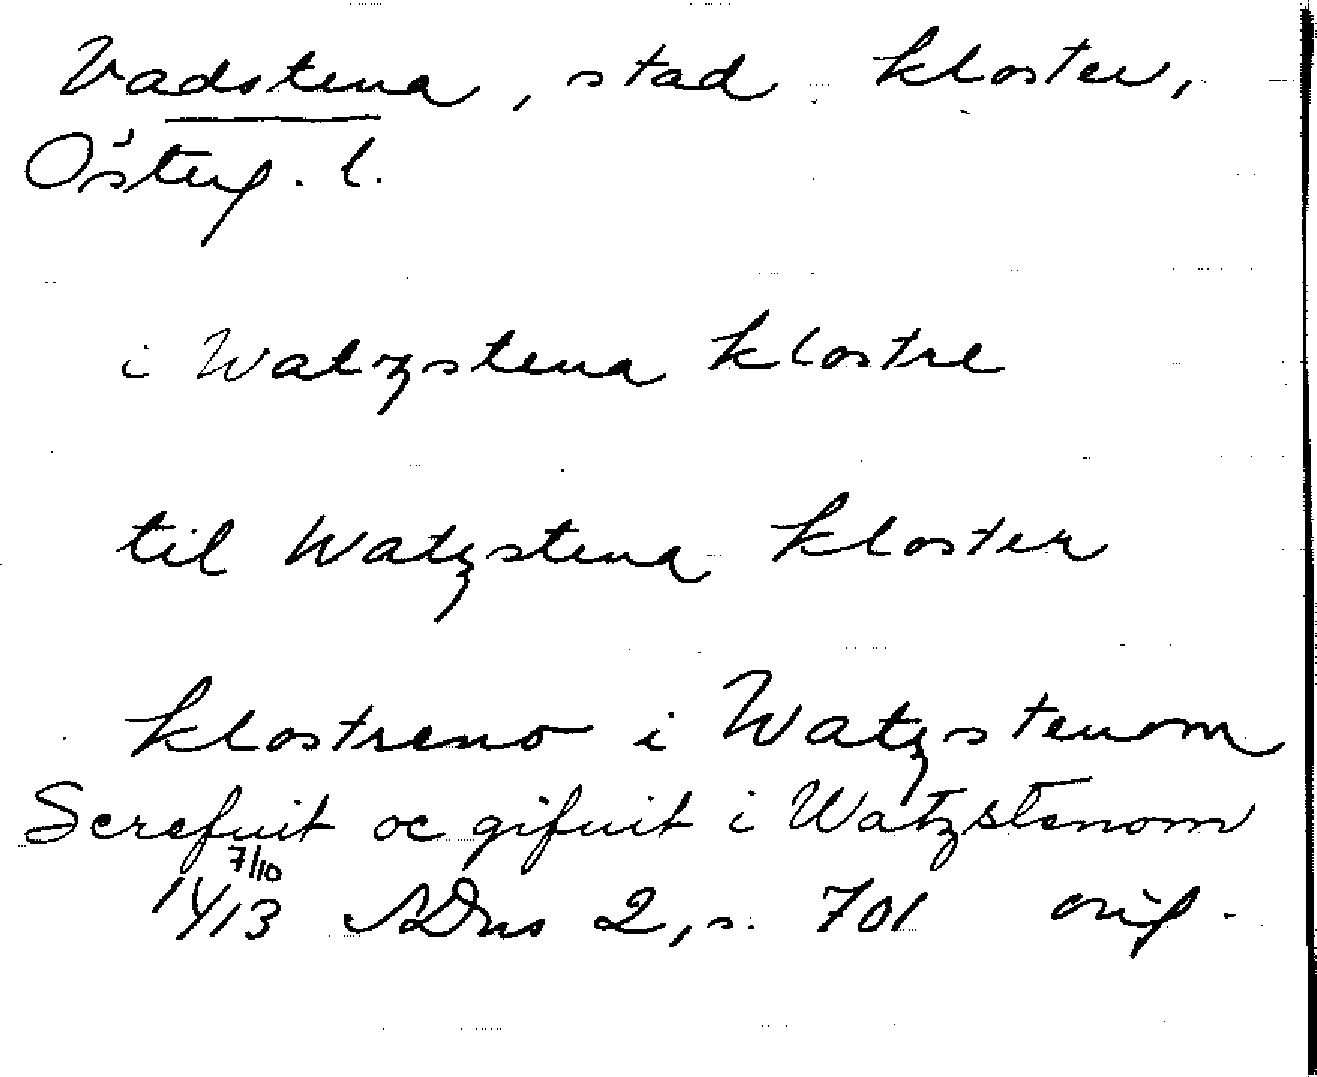 Vadstena, stad kloster,
Österg. l.
i Watzstena klostre
til Watzstena kloster
klostreno i Watzstenom
Screfuit oc gifuit i Watzstenom
7/10
1413 SDns 2, s. 701 orig.